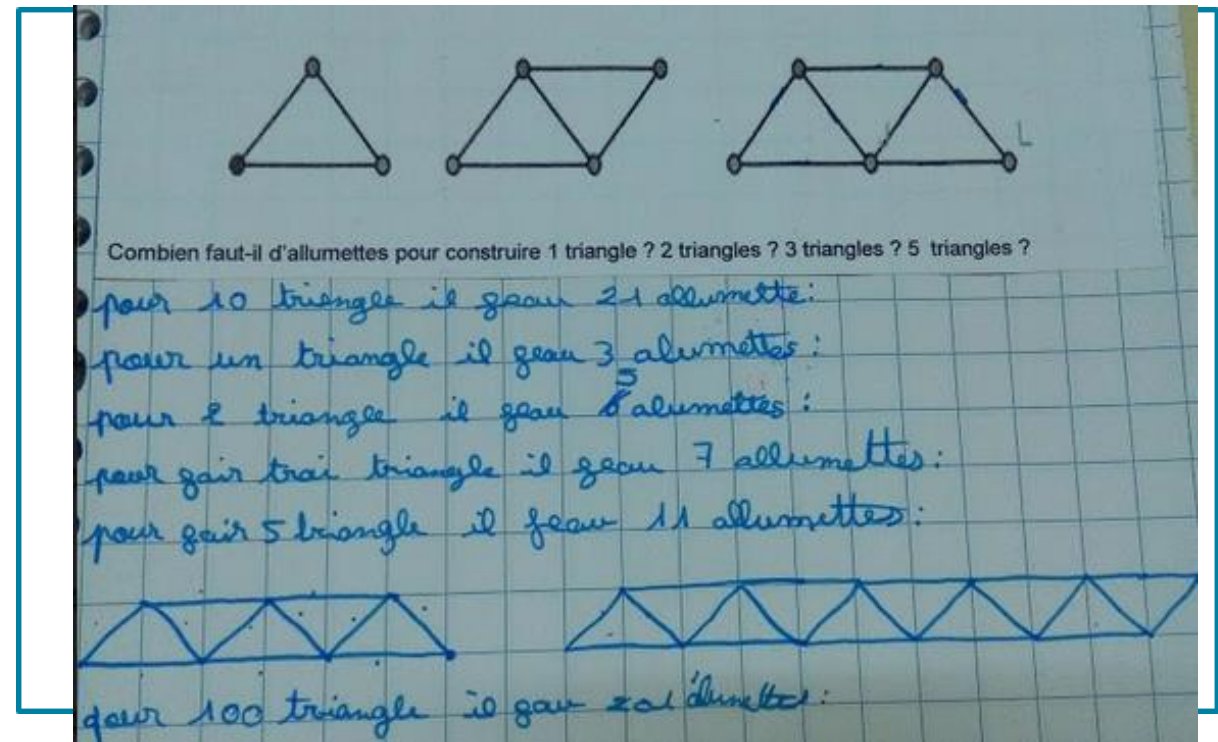 L
Combien faut-il d'allumettes pour construire 1 triangle ? 2 triangles ? 3 triangles ? 5 triangles ?
pour 10 triangle il geau 21 allumette:
pour un triangle il geau 3 alumettes:
pour 2 triangle il geau 5 alumettes:
pour gair trai triangle il geau 7 allumettes:
pour gair 5 triangle il feau 11 allumettes:
pour 100 triangle il gau 201 alumettes: